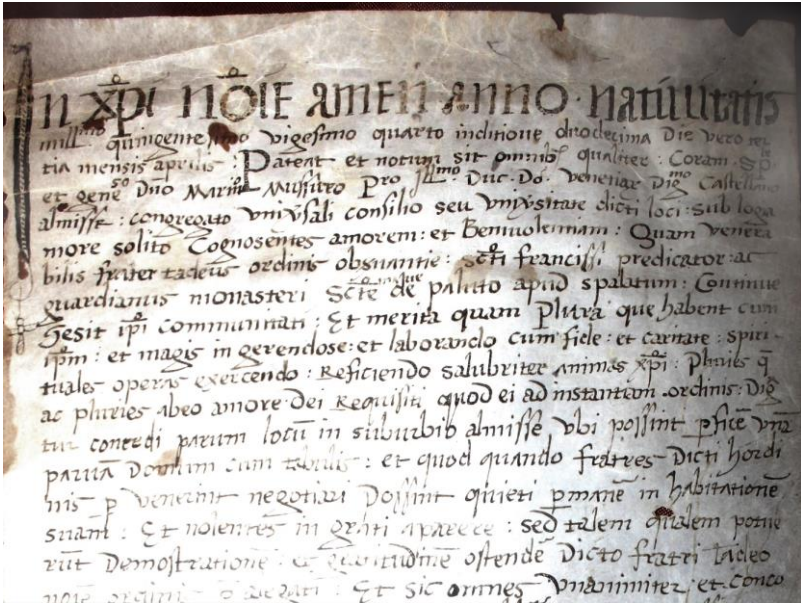 In xp̄i nōie amen anno · natiuitatis
mill^mo quingentesimo vigesimo quarto inditione duodecima Die vero ter
tia mensis aprilis : Pateat et notum sit omnib; qualiter : Coram · Sp
et gene^so Dno Mario Mussuro Pro Ill^mo : Duc · Do · venetiar Dig^mo Castellano
almisse : congregato vniusali consilio seu vniusitate dicti loci : sub logia
more solito Cognosentes amorem : et Beniuolentiam : Quam venera
bilis frater tadeus ordinis obseruantie : scti francissi predicator : ac
guardianus monasteri Scte de paluto apud spalatum : Continue
gesit ipi communitati : Et merita quam plura que habent cum
ipm : et magis in gerendose : et laborando cum fide : et caritate : spiri
tuales operas exercendo : Reficiendo salubriter animas xpi : Pluries q
ac pluries abeo amore dei Requisiti quod ei ad instantiam ordinis : Dig
tur concedi parum locū in suburbio almisse vbi possint pficē vnā
paruā Domum cum tabulis : et quod quando fratres Dicti hordi
nis p venerint negotiari possint quieti pmanē in habitationē
suam : Et nolentes in grati aparere : sed talem qualem potue
rūt Demostrationē : et gratitudinē ostendē Dicto fratri tadeo
noīe ordinis Et sic omnes vnanimiter et conco